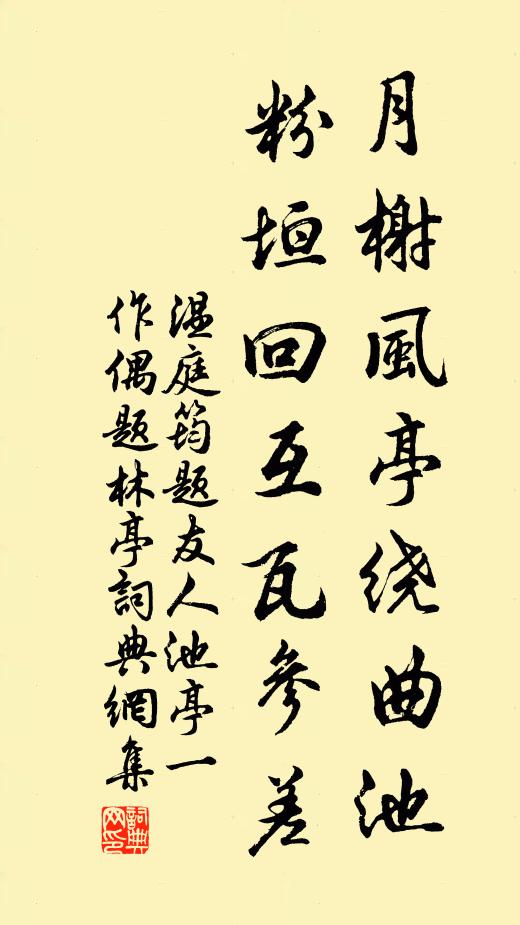 月榭風亭绕曲池
粉垣回互瓦參差
温庭筠题友人池亭一
作偶题林亭詞典網集
詞典网印